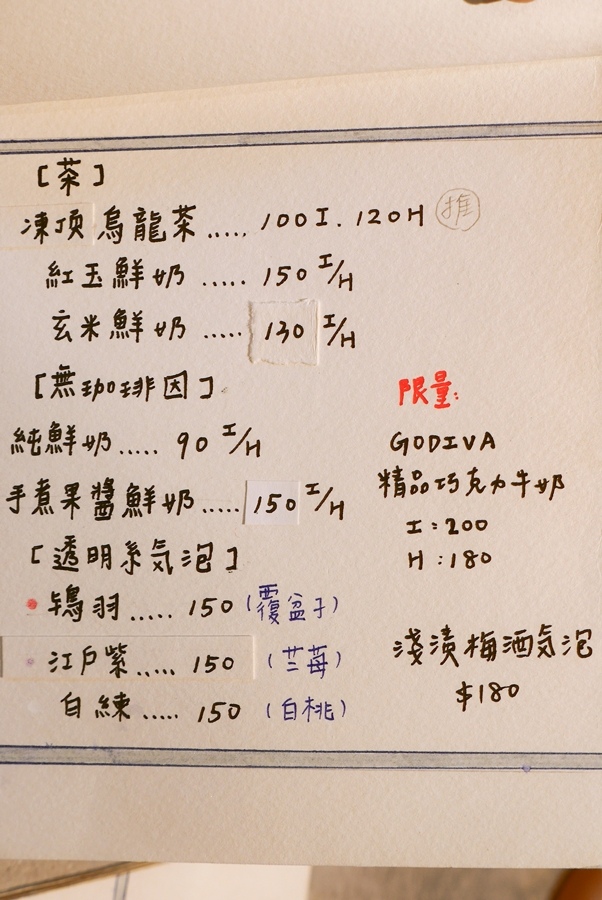 [茶]
凍頂烏龍茶..... 100I. 120H 推
紅玉鮮奶 ..... 150 I/H
玄米鮮奶 ..... 130 I/H
[無珈琲因]
純鮮奶..... 90 I/H
手煮果醬鮮奶..... 150 I/H
[透明系気泡]
鴇羽..... 150 (覆盆子)
江戶紫..... 150 (兰莓)
白練..... 150 (白桃)
限量:
GODIVA
精品巧克力牛奶
I:200
H:180
淺漬梅酒気泡
$180